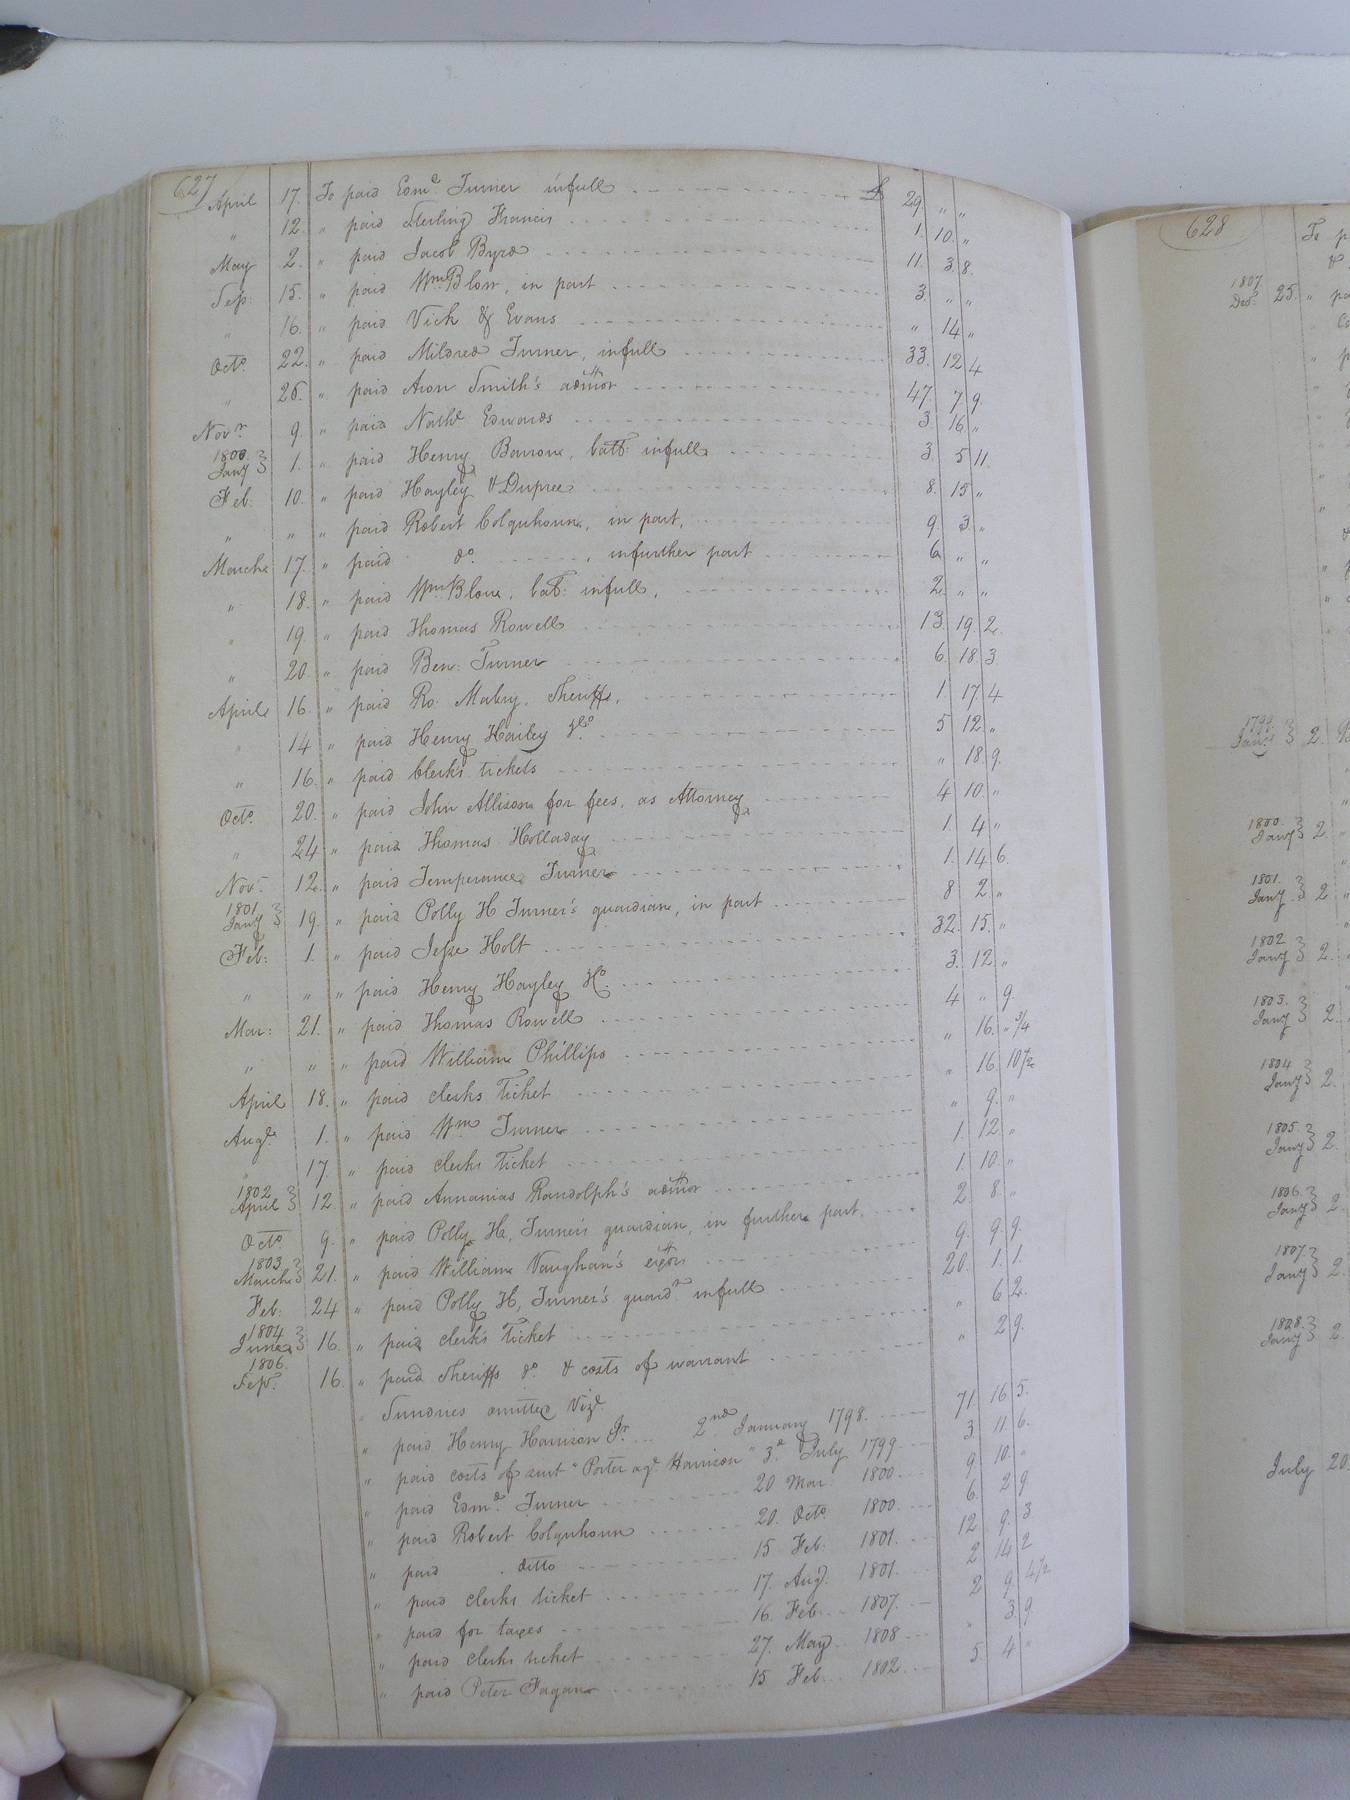 627
April 17. To paid Edmd. Turner infull £ 29 " "
" 12. " paid Sterling Francis 1. 10. "
May 2. " paid Jacob Byrd 11. 3. 8.
Sep: 15. " paid Wm. Blow, in part 3. " "
" 16. " paid Vick & Evans " 14 "
Octo. 22. " paid Mildred Turner, infull 33. 12 4
" 26. " paid Aron Smith's admor 47. 7 9.
Novr. 9. " paid Nathl. Edwards 3. 16. "
1800. Jany 1. " paid Henry Barrow, balle. infull 3. 5 11.
Feb: 10. " paid Hayley & Dupree 8. 15 "
" " " paid Robert Colquhoun, in part, 9. 3. "
March 17. " paid do. , infurther part 6 " "
" 18. " paid Wm. Blow, bal: infull, 2 " "
" 19 " paid Thomas Rowell 13. 19. 2.
" 20. " paid Ben: Turner 6. 18. 3.
April 16. " paid Ro. Mabry, Sheriff, 1 17 4
" 14 " paid Henry Hailey 5 12. "
" 16. " paid Clerks tickets " 18. 9.
Octo. 20. " paid John Allison for fees, as Attorney 4 10. "
" 24 " paid Thomas Holladay 1. 4 "
Novr. 12. " paid Temperance Turner 1. 14 6.
1801. Jany 19. " paid Polly H Turner's guardian, in part 8 2 "
Feb: 1. " paid Jesse Holt 32. 15. "
" " " paid Henry Hayley 3. 12 "
Mar: 21. " paid Thomas Rowell 4 " 9.
" " " paid William Phillips " 16. " 3/4
April 18. " paid clerks Ticket " 16 10 1/2
Augt. 1. " paid Wm. Turner " 9. "
" 17. " paid clerks Ticket 1. 12. "
1802 April 12. " paid Annanias Randolph's admor 1. 10. "
Octo. 9. " paid Polly H. Turner's guardian, in further part 2. 8. "
1803. March 21. " paid William Vaughan's exors 9. 9. 9.
Feb: 24 " paid Polly H, Turner's guardn. infull 20. 1. 1.
1804 June 16. " paid clerks Ticket " 6 2.
1806. Sepr. 16. " paid Sheriffs do. & costs of warrant " 2 9.
" Sundries omitted Vizt.
" paid Henry Harrison Jr. 2nd January 1798. 71. 16 5.
" paid costs of suit "Porter agt. Harrison" 3d. July 1799 3. 11. 6.
" paid Edmd. Turner 20 Mar: 1800 9. 10. "
" paid Robert Colquhoun 20. Octo. 1800 6. 2 9
" paid ditto 15 Feb: 1801. 12 9. 3
" paid clerks ticket 17. Aug. 1801. 2 14 2
" paid for taxes 16. Feb 1807. 2 9. 4 1/2
" paid clerks ticket 27. May 1808 " 3. 9
" paid Peter Fagan 15 Feb 1802 5. 4 "
628
To
1807. Decr. 25. "
Jany. 2.
1800. Jany 2.
1801. Jany. 2
1802 Jany 2.
1803. Jany 2.
1804 Jany 2.
1805. Jany 2.
1806. Jany 2
1807. Jany 2
1808. Jany 2.
July 20.